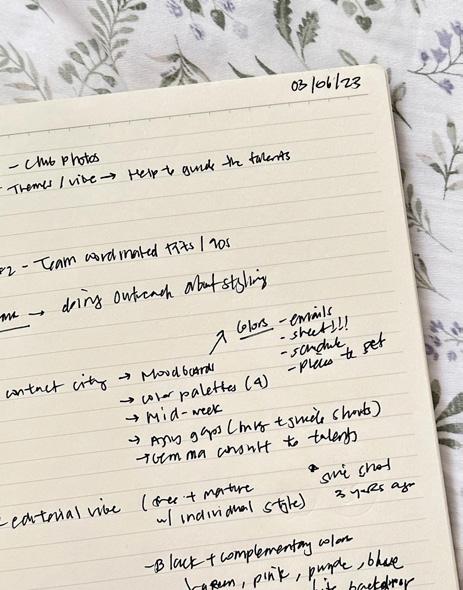 03/06/23
- Club photos
- Themes / vibe → Help to guide the talents
#2 - Team coordinated fits / 90s
→ doing outreach about styling
Colors - emails
- sheet!!!
- schedule
- pieces to get
contact city → Moodboards
→ color palettes (4)
→ Mid-week
→ Any gaps (
→ Gemma consult to talents
editorial vibe ( + mature
w/ individual style)
3 years ago
- Black + complementary color
green, pink, purple,
backdrop